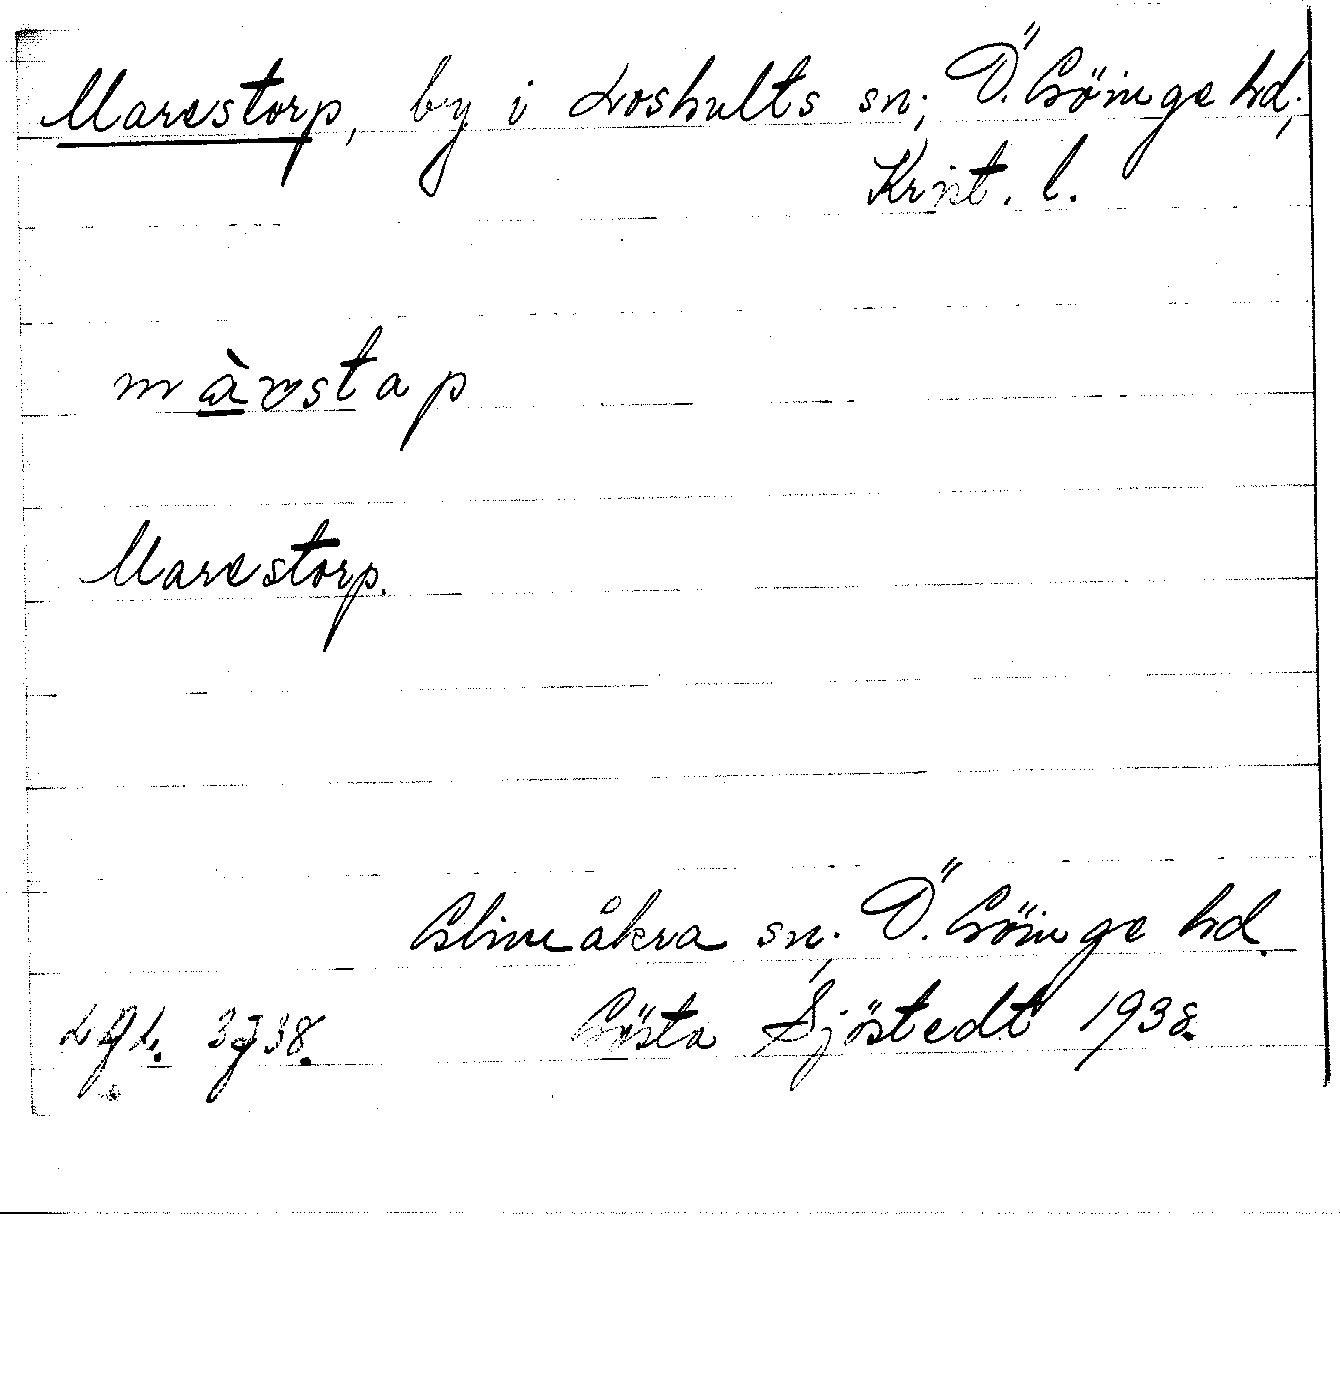 Marestorp, by i Loshults sn; Ö. Göinge hd.,
Krist. l.
màrstap
Marestorp.
Glimåkra sn, Ö. Göinge hd.
Gösta Sjöstedt 1938.